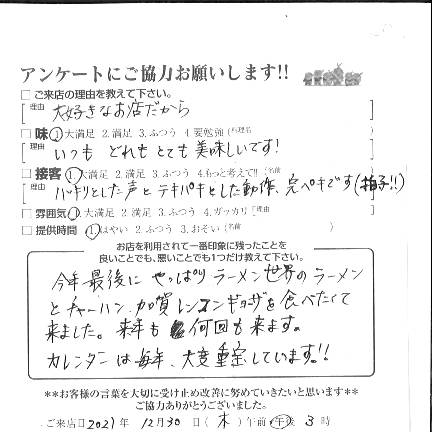 アンケートにご協力お願いします!!
□ご来店の理由を教えて下さい。
理由 大好きなお店だから
□味 1.大満足 2.満足 3.ふつう 4.要勉強(料理名 )
理由 いつも どれも とても 美味しいです!
□接客 1.大満足 2.満足 3.ふつう 4.もっと考えて!!(名前
理由 ハキリとした声と テキパキとした動作、完ペキです(拍手!!)
□雰囲気 1.大満足 2.満足 3.ふつう 4.ガッカリ 理由
□提供時間 1.はやい 2.ふつう 3.おそい(名前 )
お店を利用されて一番印象に残ったことを
良いことでも、悪いことでも1つだけ教えて下さい。
今年最後に やっぱり ラーメン世界のラーメン
とチャーハン、加賀レンコンギョウザを食べたくて
来ました。来年も 何回も来ます。
カレンダーは毎年、大変重宝しています!!
**お客様の言葉を大切に受け止め改善に努めていきたいと思います**
ご協力ありがとうございました。
ご来店日 2021年 12月 30日(木)午前・午後 3時